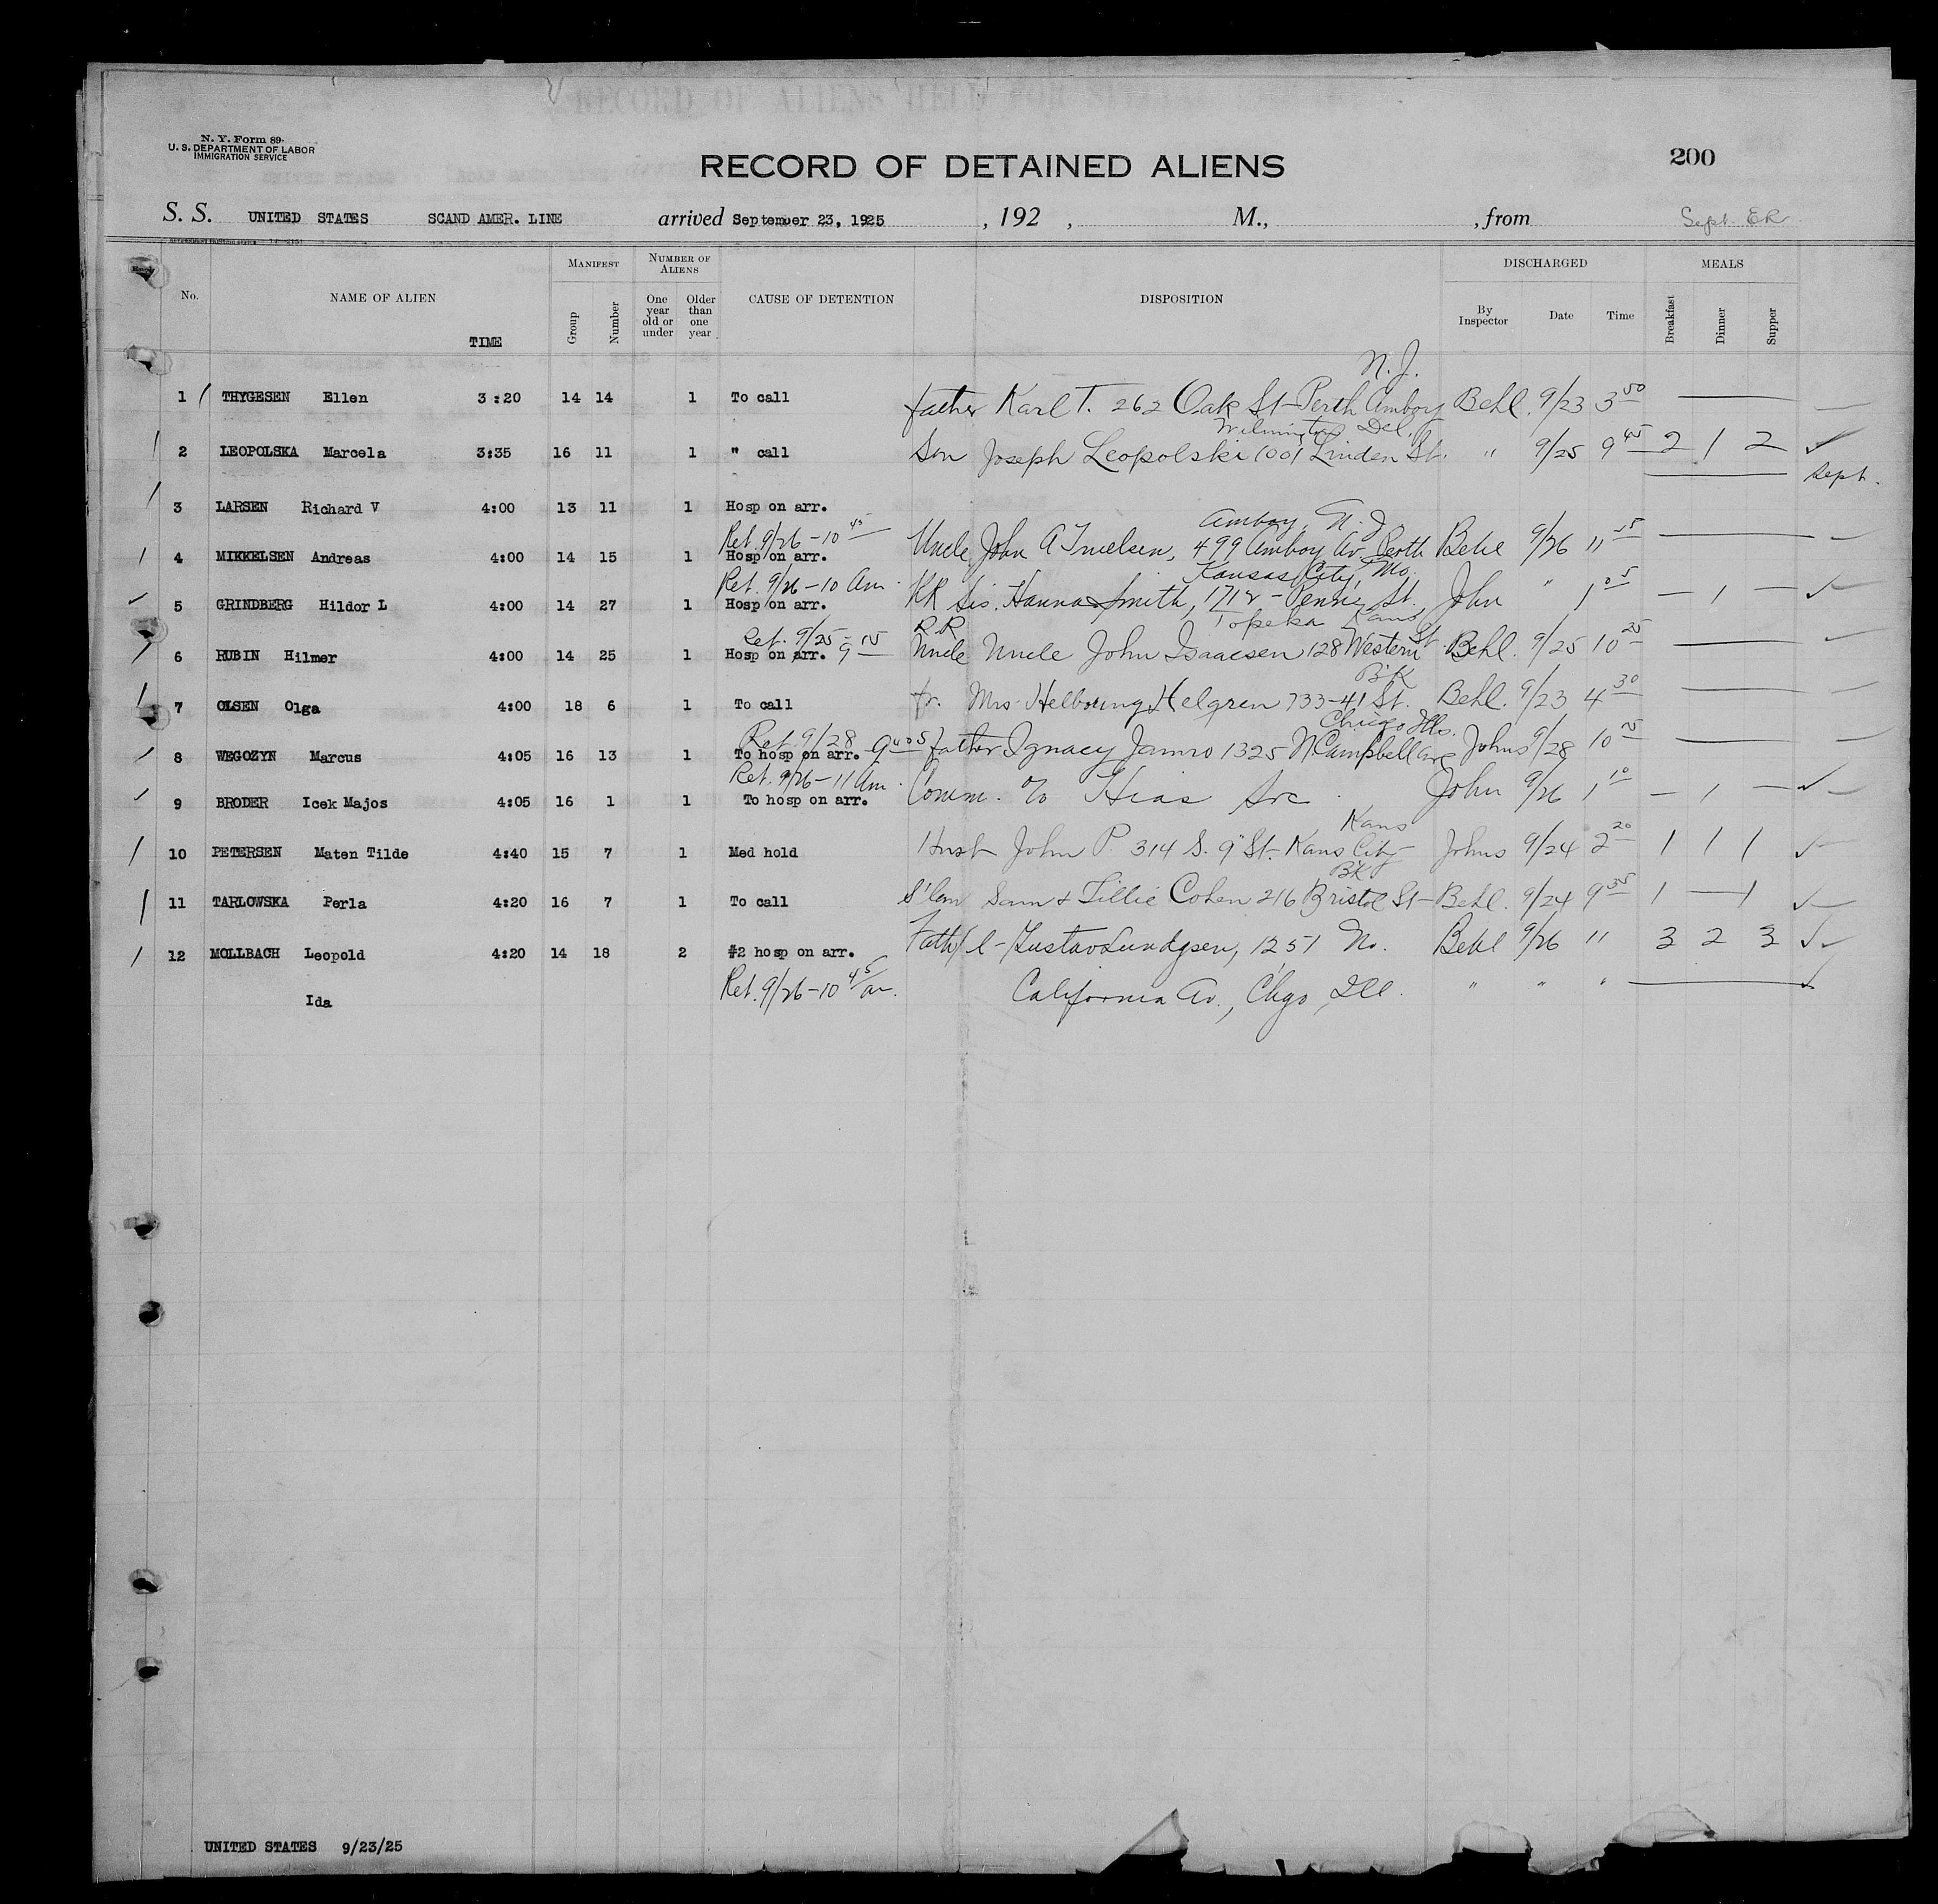 N. Y. Form 89
U. S. DEPARTMENT OF LABOR
IMMIGRATION SERVICE
RECORD OF DETAINED ALIENS
200
S. S. UNITED STATES SCAND AMER. LINE arrived September 23, 1925 , 192 , M., , from Sept. ER
No. NAME OF ALIEN TIME MANIFEST Group Number NUMBER OF ALIENS One year old or under Older than one year CAUSE OF DETENTION DISPOSITION DISCHARGED By Inspector Date Time MEALS Breakfast Dinner Supper
N. J.
1 THYGESEN Ellen 3:20 14 14 1 To call father Karl T. 262 Oak St-Perth Amboy Behl. 9/23 3 50
Wilmington Del.
2 LEOPOLSKA Marcela 3:35 16 11 1 " call Son Joseph Leopolski 1001 Linden St. " 9/25 9 45 2 1 2
Sept.
3 LARSEN Richard V 4:00 13 11 1 Hosp on arr.
Ret. 9/26-10 45 Amboy, N. J
4 MIKKELSEN Andreas 4:00 14 15 1 Hosp on arr. Uncle John A 499 Amboy Av. Perth Behl 9/26 11 15
Ret. 9/26-10 Am. Kansas City, Mo.
5 GRINDBERG Hildor L 4:00 14 27 1 Hosp on arr. RR Sis. Hanna Smith, 1718 - Penn St. John " 1 05 — 1 —
Ret. 9/25- 9 15 RR Topeka Kans
6 RUBIN Hilmer 4:00 14 25 1 Hosp on arr. Uncle Uncle John Isaacsen 128 Western St. Behl. 9/25 10 25
B'K
7 OLSEN Olga 4:00 18 6 1 To call fr. Mrs Helbring Helgren 733-41 St. Behl. 9/23 4 30
Ret 9/28 9 Chicago Ills.
8 WEGOZYN Marcus 4:05 16 13 1 To hosp on arr. father Ignacy Jamro 1325 N Campbell ave Johns 9/28 10
Ret. 9/26-11 Am.
9 BRODER Icek Majos 4:05 16 1 1 To hosp on arr. Comm. c/o Hias Soc John 9/26 1 10 — 1 —
Kans
10 PETERSEN Maten Tilde 4:40 15 7 1 Med hold Husb John P. 314 S. 9" St. Kans City Johns 9/24 2 20 1 1 1
BK
11 TARLOWSKA Perla 4:20 16 7 1 To call Sam & Lillie Cohen 216 Bristol St- Behl. 9/24 9 35 1 — 1
12 MOLLBACH Leopold 4:20 14 18 2 #2 hosp on arr. Fath/l- Gustav Lundgsen, 1251 No. Behl 9/26 11 3 2 3
Ida Ret. 9/26-10 45/am. California Av., Chgo, Ill. " " "
UNITED STATES 9/23/25